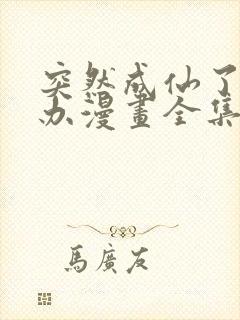 突然成仙了
办漫畫全集
馬廣友